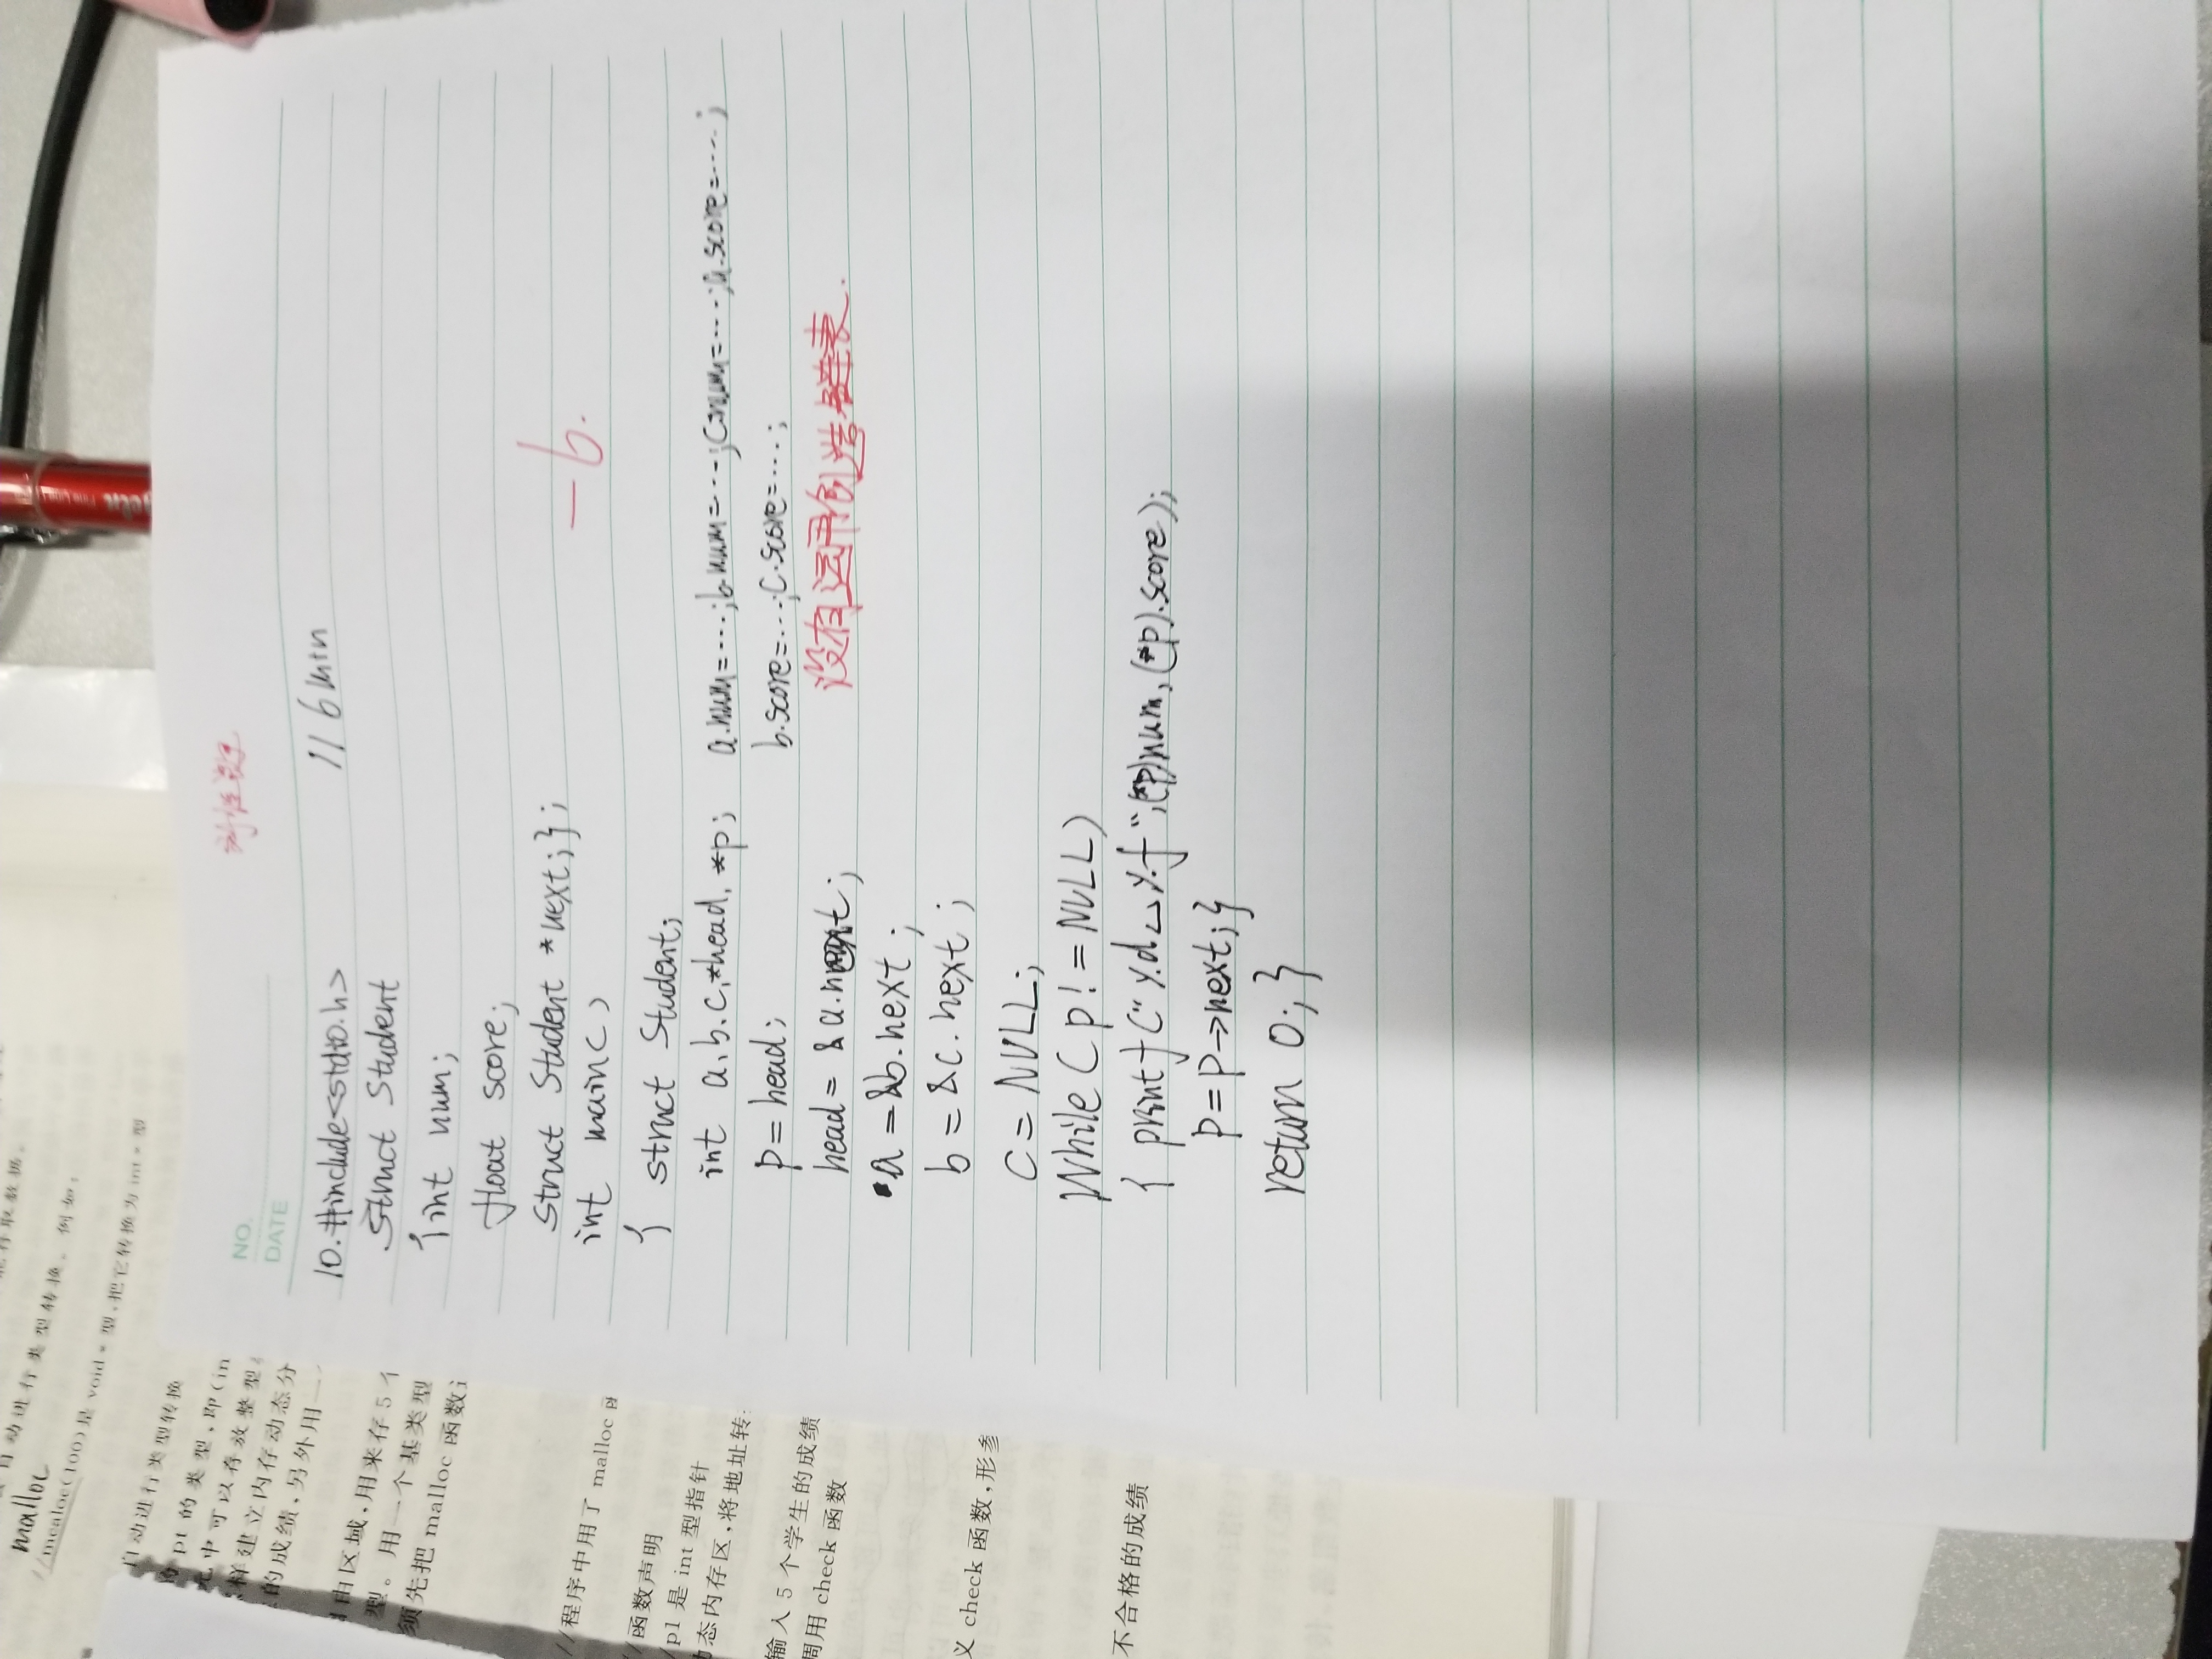 自动进行类型转换。例如：
malloc
//mcaloc(100)是 void * 型,把它转换为 int * 型
自动进行类型转换
的 pt 的类型,即(in
元中可以存放整型
样建立内存动态分
的成绩,另外用一
由区域,用来存 5 个
型。用一个基类型
须先把 malloc 函数
//程序中用了 malloc 函
//函数声明
//p1 是 int 型指针
动态内存区,将地址转
输入 5 个学生的成绩
调用 check 函数
义 check 函数,形参
不合格的成绩
NO.
DATE
10. #include<stdio.h> // 6min
struct Student
{int num;
float score;
struct Student *next;};
int main()
{ struct Student;
int a,b,c,*head,*p; a.num=...;b.num=...;c.num=...;a.score=...;
p=head; b.score=...;c.score=...;
head=&a.next; 没有运用创造链表.
a=&b.next;
b=&c.next;
c=NULL;
While(p!=NULL)
{ printf("%d␣%f",(*p)num,(*p).score);
p=p→next;}
return 0;}
-6.